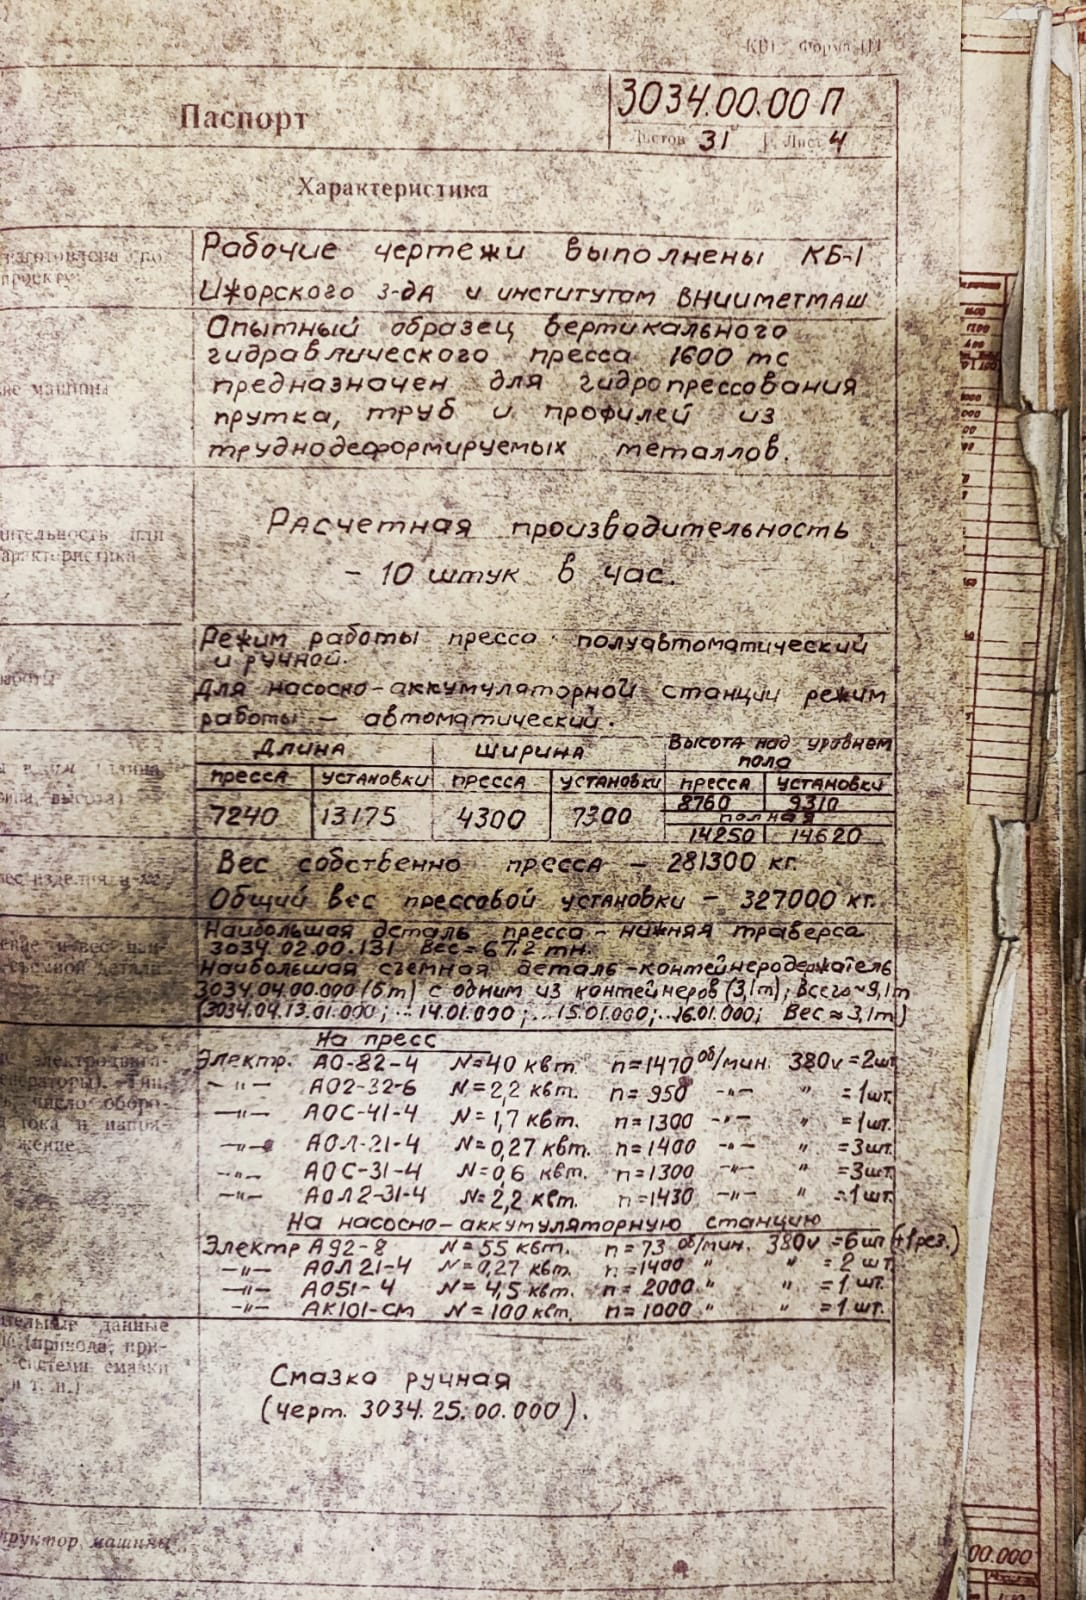 КБ1 Форма
Паспорт
3034.00.00 П
Листов 31 Лист 4
Характеристика
проекту
Рабочие чертежи выполнены КБ-1
Ижорского з-да и институтом ВНИИМЕТМАШ
машины
Опытный образец вертикального
гидравлического пресса 1600 тс
предназначен для гидропрессования
прутка, труб и профилей из
труднодеформируемых металлов.
или
характеристика
Расчетная производительность
- 10 штук в час.
работы
Режим работы пресса полуавтоматический
и ручной.
Для насосно-аккумуляторной станции режим
работы - автоматический.
Длина Ширина Высота над уровнем
пола
пресса установки пресса установки пресса установки
8760 9310
7240 13175 4300 7300 полная
14250 14620
Вес собственно пресса - 281300 кг.
Общий вес прессовой установки - 327000 кг.
Наибольшая деталь пресса - нижняя траверса
3034.02.00.131 Вес = 67,2 тн.
Наибольшая съемная деталь - контейнеродержатель
3034.04.00.000 (6т) с одним из контейнеров (3,1т); Всего ~ 9,1т
(3034.04.13.01.000; ...14.01.000; ...15.01.000; ...16.01.000; Вес ≈ 3,1т)
На пресс
Электр. АО-82-4 N=40 квт. n=1470 об/мин. 380v =2шт
-"- АО2-32-6 N=2,2 квт. n=950 -"- " =1шт.
-"- АОС-41-4 N=1,7 квт. n=1300 -"- " =1шт.
-"- АОЛ-21-4 N=0,27 квт. n=1400 -"- " =3шт
-"- АОС-31-4 N=0,6 квт. n=1300 -"- " =3шт
-"- АОЛ2-31-4 N=2,2 квт. n=1430 -"- " =1шт
На насосно-аккумуляторную станцию
Электр А92-8 N=55 квт. n=73 об/мин. 380v =6шт (+1рез.)
-"- АОЛ21-4 N=0,27 квт. n=1400 " " =2 шт.
-"- АО51-4 N=4,5 квт. n=2000 " " =1 шт.
-"- АК101-СМ N=100 квт. n=1000 " " =1 шт.
данные
системы смазки
и т. п.)
Смазка ручная
(черт. 3034.25.00.000).
машины
00.000